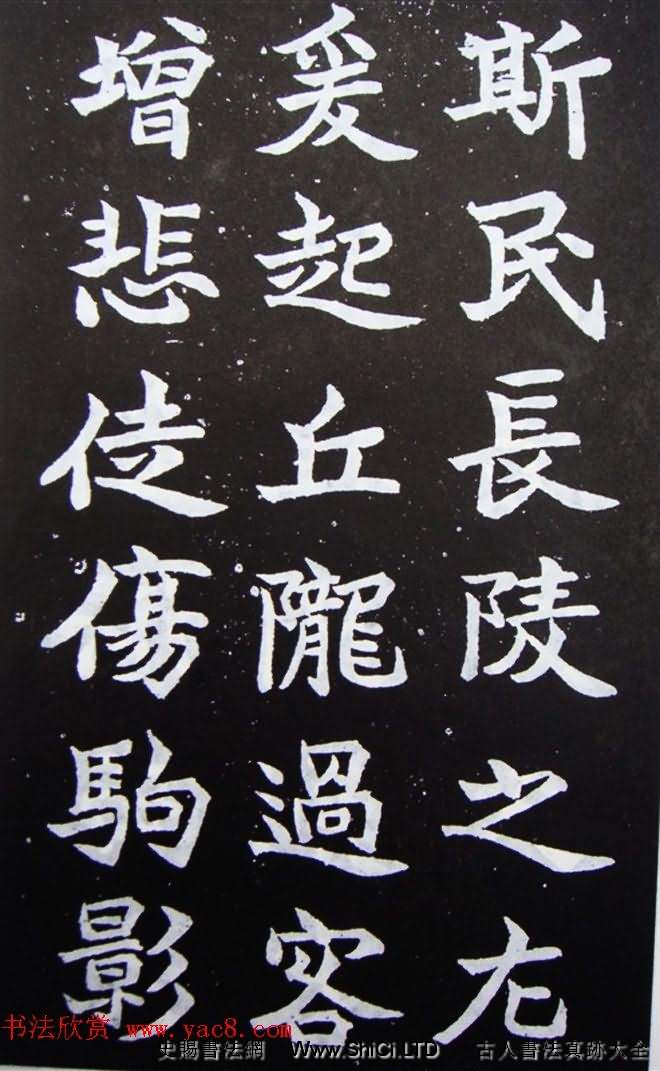 斯民長陵之尢
爰起丘隴過客
增悲徒傷駒影
书法欣赏 www.yac8.com
史賜書法網 Www.ShiCi.LTD 古人書法真跡大全